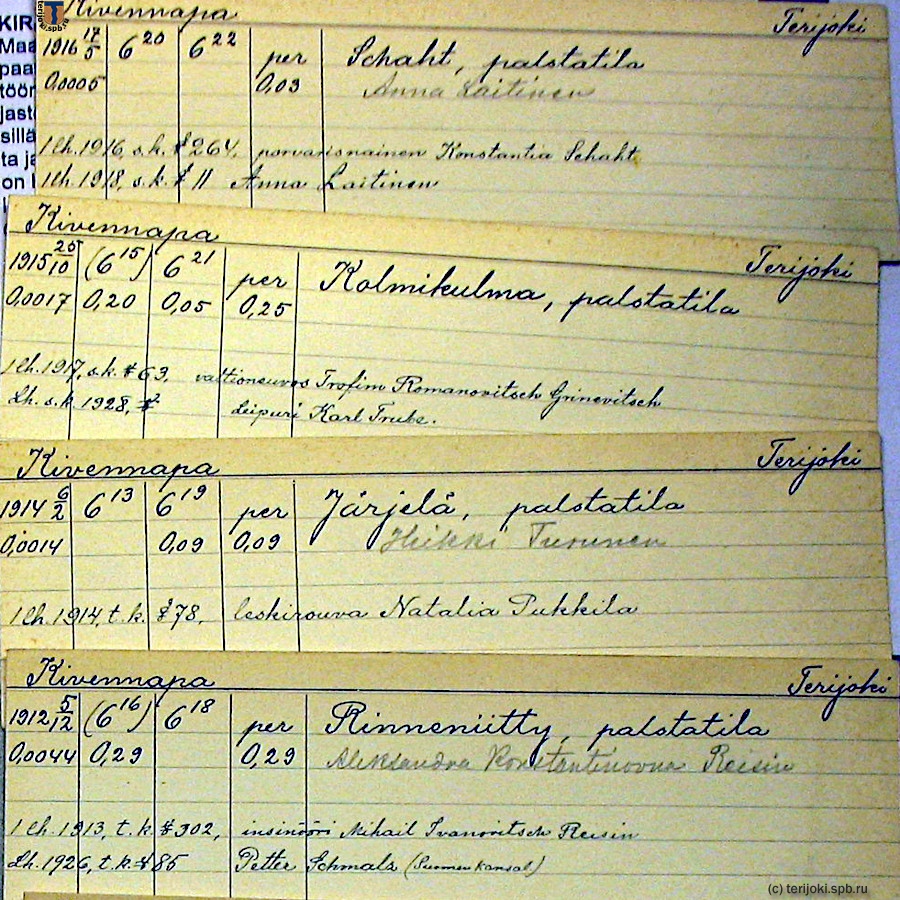 Kivennapa Terijoki
1916 17/5 6 20 6 22 per Schaht, palstatila
0,0005 0,03 Anna Laitinen
1 lh. 1916, s.k. § 264, porvarisnainen Konstantia Schaht
1 lh. 1918, s.k. § 11 Anna Laitinen
Kivennapa Terijoki
1915 25/10 (6 15) 6 21 per Kolmikulma, palstatila
0,0017 0,20 0,05 0,25
1 lh. 1917, s.k. § 63, valtioneuvos Trofim Romanovitsch Grinevitsch
Lh. s.k. 1928, § Leipuri Karl Trube.
Kivennapa Terijoki
1914 6/2 6 13 6 19 per Järjelä, palstatila
0,0014 0,09 0,09 Heikki Turunen
1 lh. 1914, t.k. § 78, leskirouva Natalia Pukkila
Kivennapa Terijoki
1912 5/12 (6 16) 6 18 per Rinneniitty, palstatila
0,0044 0,29 0,29 Aleksandra Konstantinovna Reisin
1 lh. 1913, t.k. § 302, insinööri Mihail Ivanovitsch Reisin
Lh. 1926, t.k. § 85 Petter Schmalz (Suomen kansal.)
(c) terijoki.spb.ru